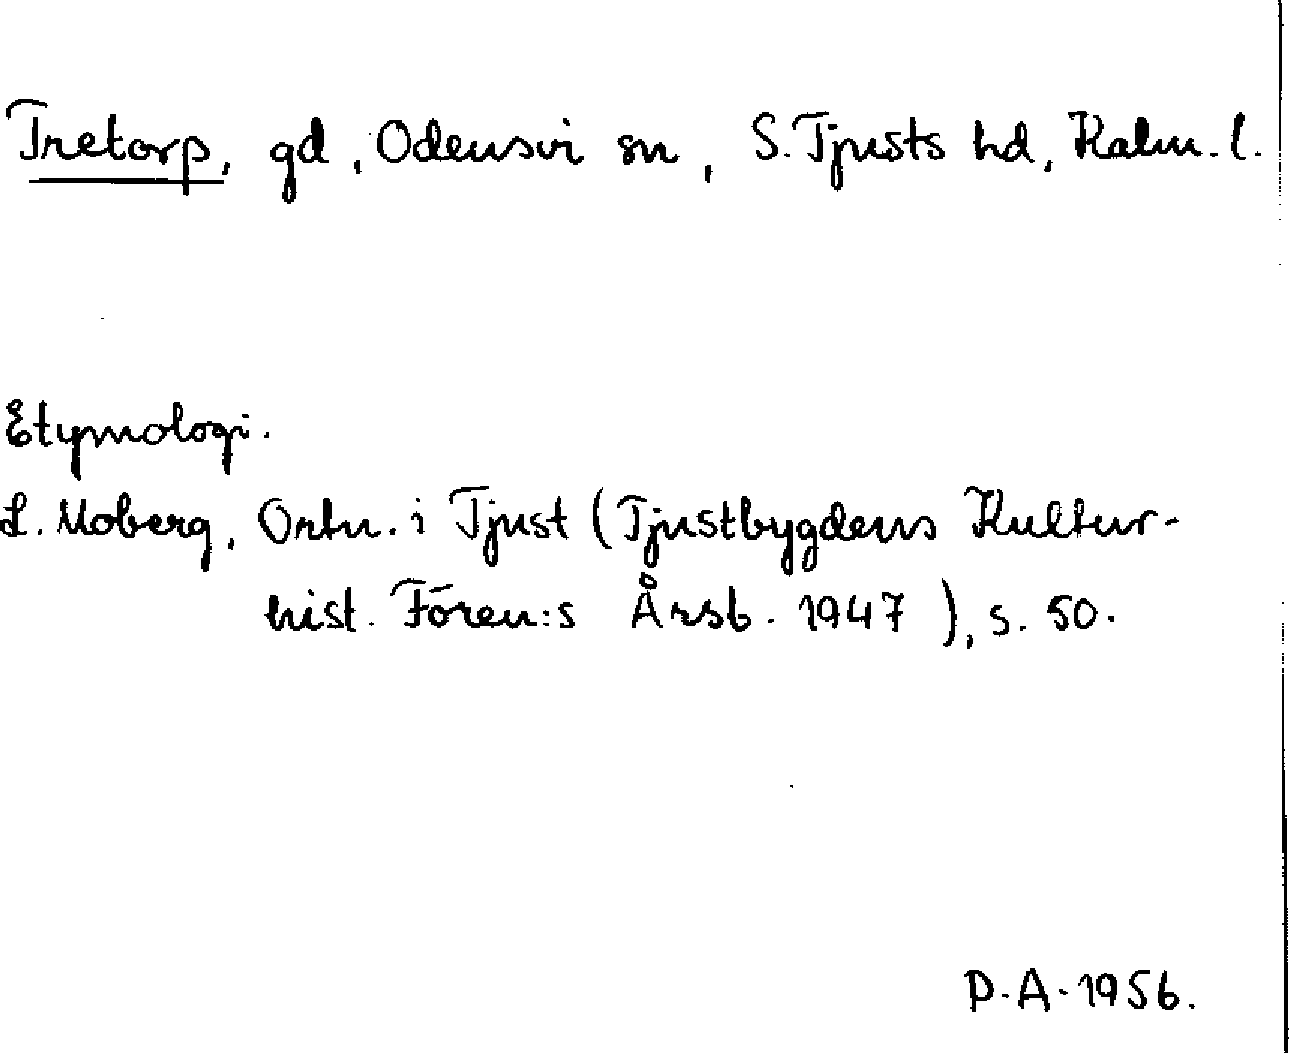 Tretorp, gd, Odensvi sn, S. Tjusts hd, Kalm. l.
Etymologi.
L. Moberg, Ortn. i Tjust (Tjustbygdens Kultur-
hist. Fören:s Årsb. 1947), s. 50.
P.A. 1956.